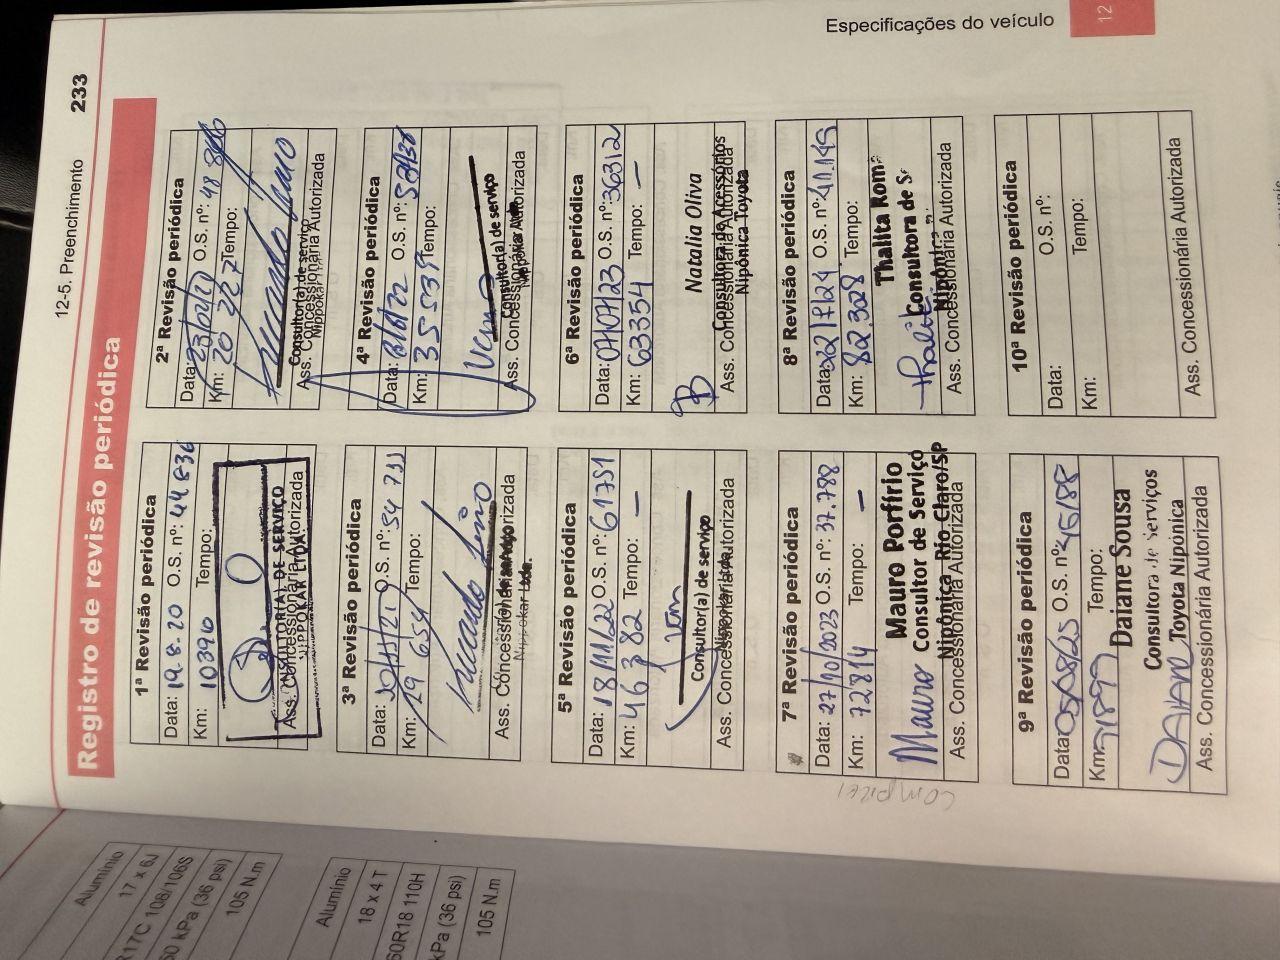 12-5. Preenchimento 233
Registro de revisão periódica
1ª Revisão periódica
Data: 19.8.20 O.S. nº: 44.836
Km: 10390 Tempo:
CONSULTOR(A) DE SERVIÇO
NIPPOKAR LTDA.
Ass. Concessionária Autorizada
2ª Revisão periódica
Data: O.S. nº:
Km: 20 227 Tempo:
Consultor(a) de serviço
Nippokar
Ass. Concessionária Autorizada
3ª Revisão periódica
Data: O.S. nº: 54 733
Km: 29 654 Tempo:
Nippokar Ltda.
Ass. Concessionária Autorizada
4ª Revisão periódica
Data: O.S. nº:
Km: 35539 Tempo:
Consultor(a) de serviço
Ass. Concessionária Autorizada
5ª Revisão periódica
Data: 18/11/22 O.S. nº: 61751
Km: 46382 —
Consultor(a) de serviço
Ass. Concessionária Autorizada
6ª Revisão periódica
Data: 07/07/23 O.S. nº: 36312
Km: 63354 —
Natalia Oliva
Consultora de Acessórios
Nipônica Toyota
Ass. Concessionária Autorizada
7ª Revisão periódica
Data: 27/10/2023 O.S. nº: 37.788
Km: 72814 Tempo: —
Mauro Porfírio
Mauro Consultor de Serviço
Nipônica Rio Claro/SP
Ass. Concessionária Autorizada
8ª Revisão periódica
Data: 22/7/24 O.S. nº: 41.149
Km: 82.328 Tempo:
Thalita Rom
Consultora de Se
Ass. Concessionária Autorizada
9ª Revisão periódica
Data: 05/08/25 O.S. nº: 45188
Km: 91899 Tempo:
Daiane Sousa
Consultora de Serviços
DAIANE Toyota Nipônica
Ass. Concessionária Autorizada
10ª Revisão periódica
Data: O.S. nº:
Km: Tempo:
Ass. Concessionária Autorizada
Especificações do veículo
12
Alumínio
17 x 6J
R17C 108/106S
50 kPa (36 psi)
105 N.m
Alumínio
18 x 4 T
60R18 110H
kPa (36 psi)
105 N.m